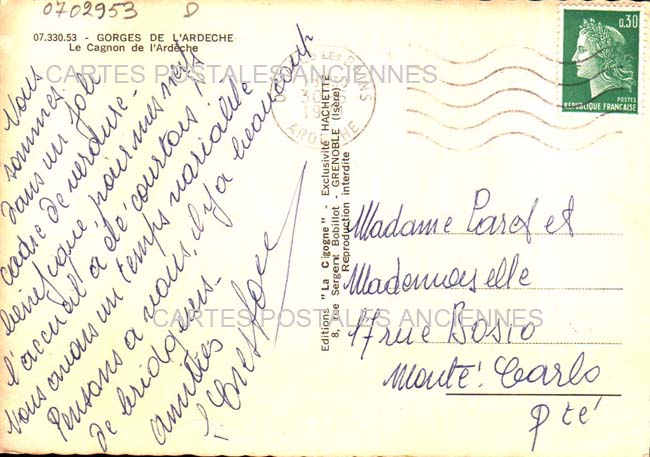 0702953 D
07.330.53 - GORGES DE L'ARDECHE
Le Cagnon de l'Ardèche
CARTES POSTALES ANCIENNES
Nous
sommes
dans un joli
cadre de verdure -
bénéfique pour mes nerfs
l'accueil a été courtois
Nous avons un temps variable
Pensons a vous, il y a beaucoup
de bridgeurs -
amitiés
Editions "La Cigogne" - Exclusivité HACHETTE
8, rue Sergent Bobillot - GRENOBLE (Isère)
Reproduction interdite
ARDECHE
30
19
0,30
POSTES
REPUBLIQUE FRANÇAISE
Madame et
Mademoiselle
17 rue Bosio
Monté-Carlo
Pté
CARTES POSTALES ANCIENNES